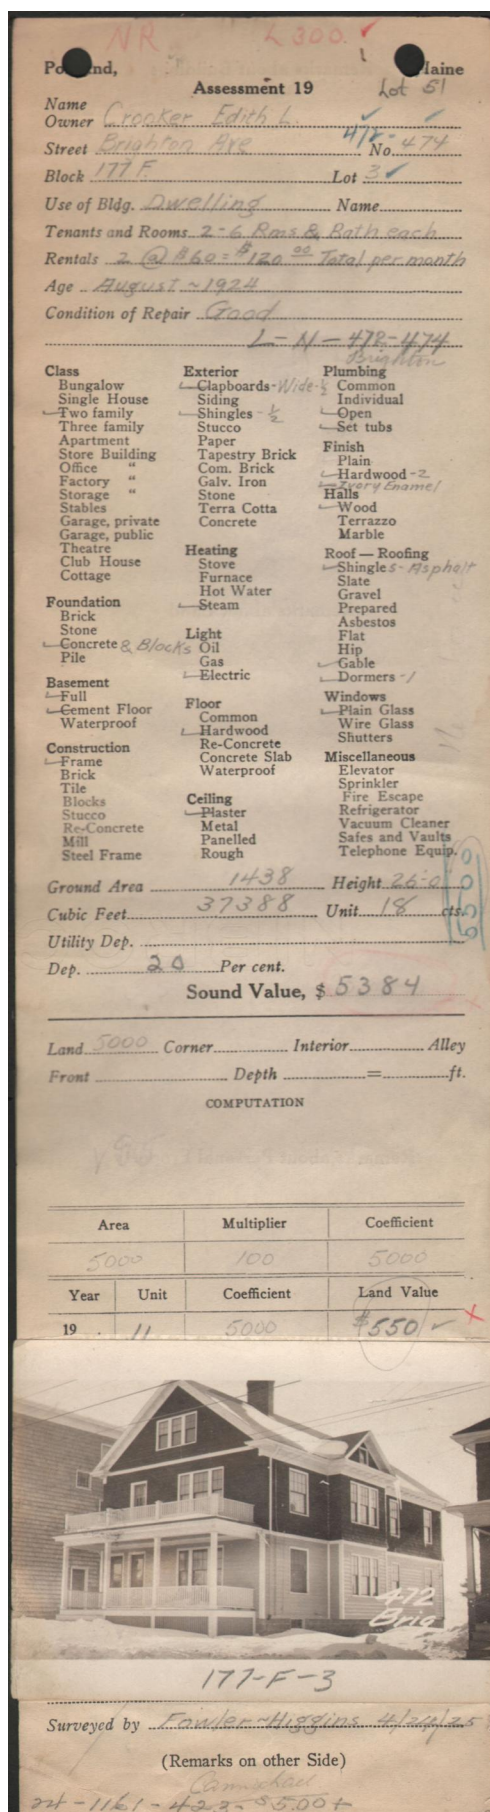 NR L 300.
Portland, Maine
Assessment 19 Lot 51
Name
Owner Crooker Edith L.
Street Brighton Ave 472- No. 474
Block 177 F Lot 3
Use of Bldg. Dwelling Name
Tenants and Rooms 2-6 Rms & Bath each
Rentals 2 @ $60 = $120 00 Total per month
Age August ~ 1924
Condition of Repair Good
L - N - 472-474
Brighton
Class
Bungalow
Single House
Two family
Three family
Apartment
Store Building
Office "
Factory "
Storage "
Stables
Garage, private
Garage, public
Theatre
Club House
Cottage
Foundation
Brick
Stone
Concrete & Blocks
Pile
Basement
Full
Cement Floor
Waterproof
Construction
Frame
Brick
Tile
Blocks
Stucco
Re-Concrete
Mill
Steel Frame
Exterior
Clapboards - Wide - ½
Siding
Shingles - ½
Stucco
Paper
Tapestry Brick
Com. Brick
Galv. Iron
Stone
Terra Cotta
Concrete
Heating
Stove
Furnace
Hot Water
Steam
Light
Oil
Gas
Electric
Floor
Common
Hardwood
Re-Concrete
Concrete Slab
Waterproof
Ceiling
Plaster
Metal
Panelled
Rough
Plumbing
Common
Individual
Open
Set tubs
Finish
Plain
Hardwood - 2
Ivory Enamel
Halls
Wood
Terrazzo
Marble
Roof — Roofing
Shingles - Asphalt
Slate
Gravel
Prepared
Asbestos
Flat
Hip
Gable
Dormers - 1
Windows
Plain Glass
Wire Glass
Shutters
Miscellaneous
Elevator
Sprinkler
Fire Escape
Refrigerator
Vacuum Cleaner
Safes and Vaults
Telephone Equip.
Ground Area 1438 Height 26-0
Cubic Feet 37388 Unit 18 cts.
Utility Dep.
Dep. 20 Per cent.
Sound Value, $ 5384
Land 5000 Corner Interior Alley
Front Depth = ft.
COMPUTATION
Area Multiplier Coefficient
5000 100 5000
Year Unit Coefficient Land Value
19 11 5000 $550
472
Brig
177-F-3
Surveyed by Fowler ~ Higgins 4/24/25
(Remarks on other Side)